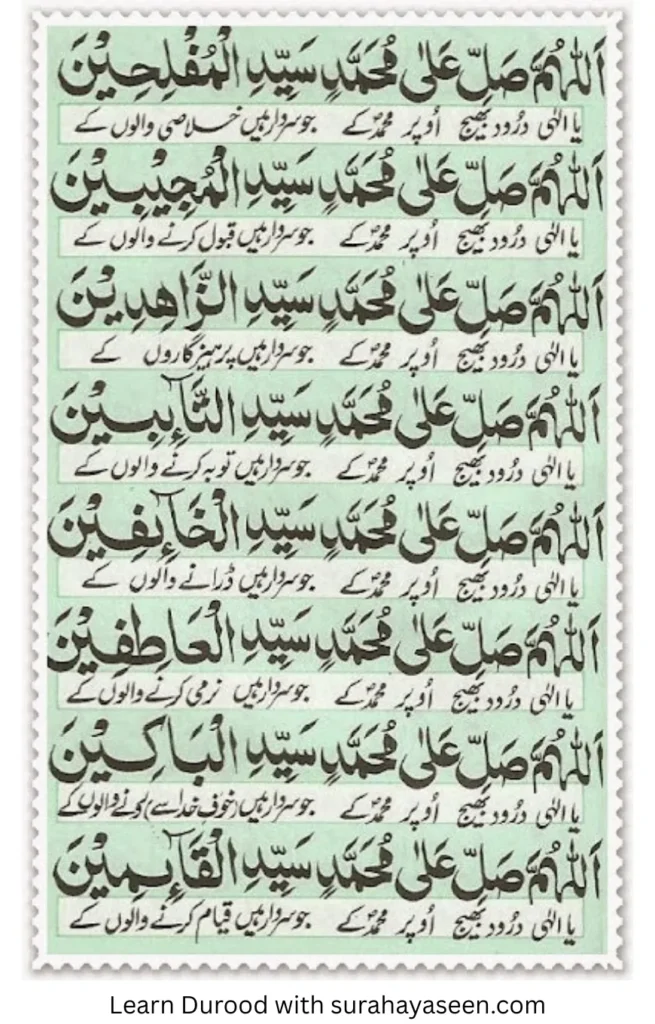 اَللّٰهُمَّ صَلِّ عَلٰى مُحَمَّدٍ سَيِّدِ الْمُفْلِحِيْنَ
یا الٰہی درُود بھیج اُوپر محمدؐ کے جو سردار ہیں خلاصی والوں کے
اَللّٰهُمَّ صَلِّ عَلٰى مُحَمَّدٍ سَيِّدِ الْمُجِيْبِيْنَ
یا الٰہی درُود بھیج اُوپر محمدؐ کے جو سردار ہیں قبول کرنے والوں کے
اَللّٰهُمَّ صَلِّ عَلٰى مُحَمَّدٍ سَيِّدِ الزَّاهِدِيْنَ
یا الٰہی درُود بھیج اُوپر محمدؐ کے جو سردار ہیں پرہیزگاروں کے
اَللّٰهُمَّ صَلِّ عَلٰى مُحَمَّدٍ سَيِّدِ التَّآئِبِيْنَ
یا الٰہی درُود بھیج اُوپر محمدؐ کے جو سردار ہیں توبہ کرنے والوں کے
اَللّٰهُمَّ صَلِّ عَلٰى مُحَمَّدٍ سَيِّدِ الْخَآئِفِيْنَ
یا الٰہی درُود بھیج اُوپر محمدؐ کے جو سردار ہیں ڈرانے والوں کے
اَللّٰهُمَّ صَلِّ عَلٰى مُحَمَّدٍ سَيِّدِ الْعَاطِفِيْنَ
یا الٰہی درُود بھیج اُوپر محمدؐ کے جو سردار ہیں نرمی کرنے والوں کے
اَللّٰهُمَّ صَلِّ عَلٰى مُحَمَّدٍ سَيِّدِ الْبَاكِيْنَ
یا الٰہی درُود بھیج اُوپر محمدؐ کے جو سردار ہیں (خوف خدا سے) رونے والوں کے
اَللّٰهُمَّ صَلِّ عَلٰى مُحَمَّدٍ سَيِّدِ الْقَآئِمِيْنَ
یا الٰہی درُود بھیج اُوپر محمدؐ کے جو سردار ہیں قیام کرنے والوں کے
Learn Durood with surahayaseen.com